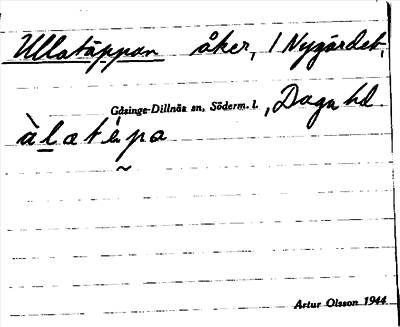 Ullatäppan åker, 1 Nygärdet,
Gåsinge-Dillnäs sn, Söderm. l. , Daga hd.
àlatépa
Artur Olsson 1944